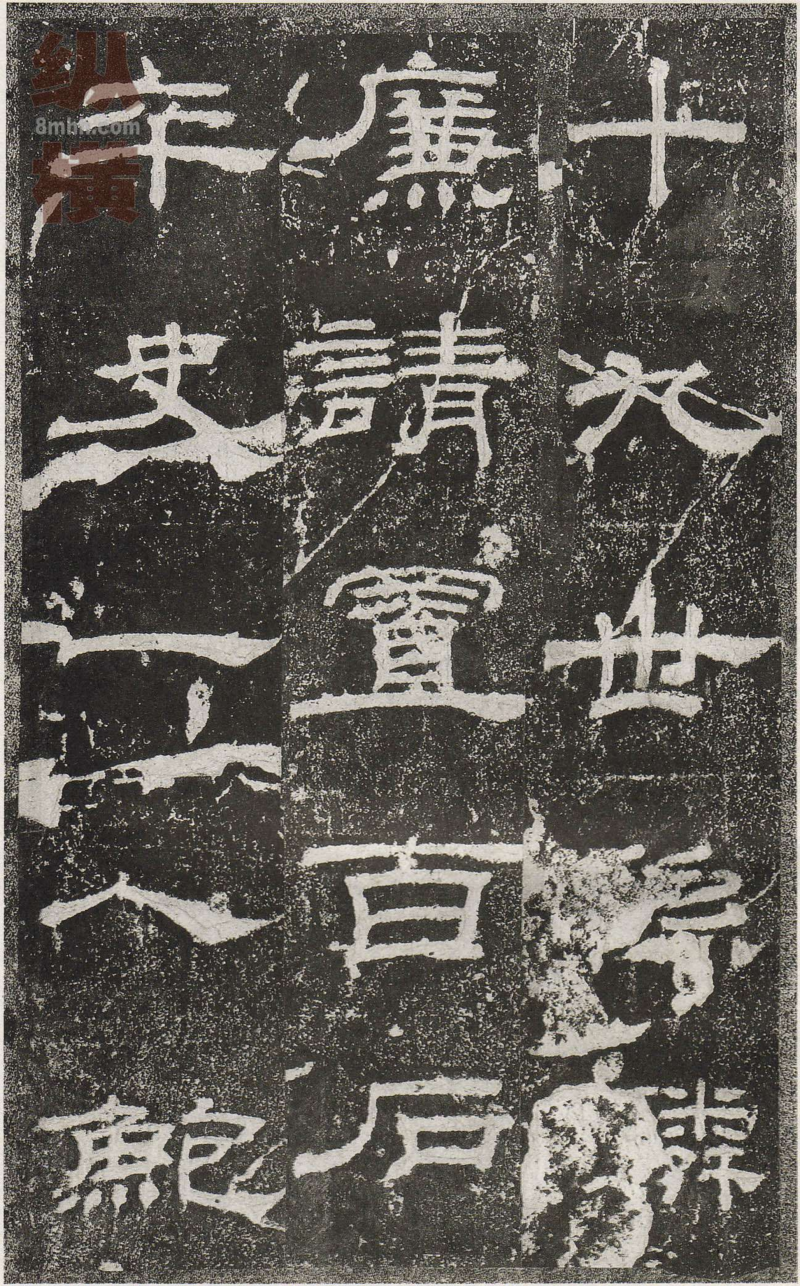 十九世孫麟
廉請置百石
卒史一人鮑
纵横
8mbh.com